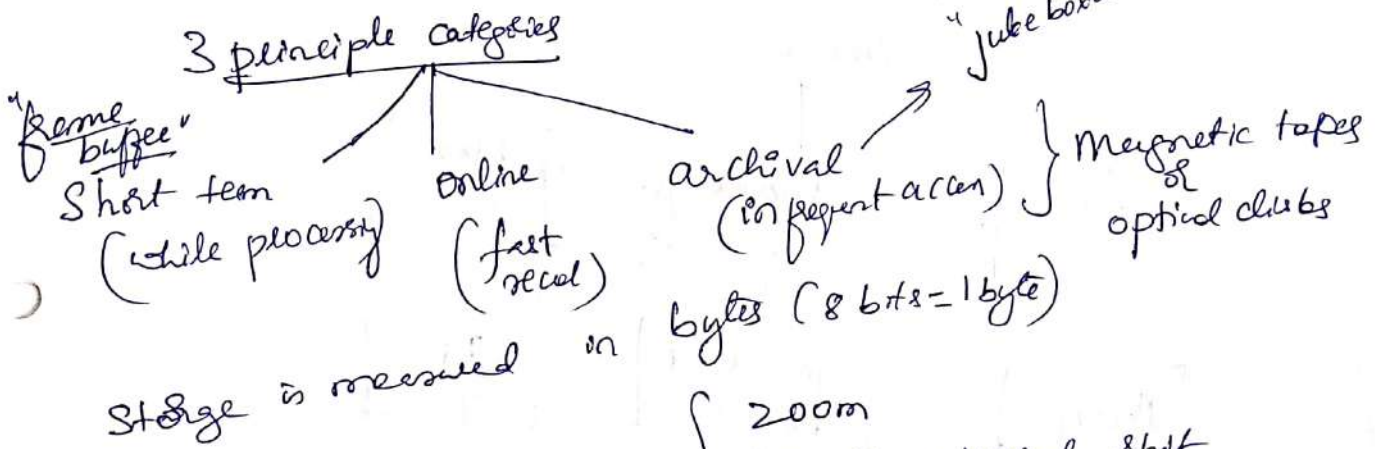 3 principle categories
"juke box
"frame
buffer"
Short term
(while processing)
online
(fast
recal)
archival
(infrequent access)
Magnetic tapes
or
optical disks
Storge is measured in bytes (8 bits = 1 byte)
200m